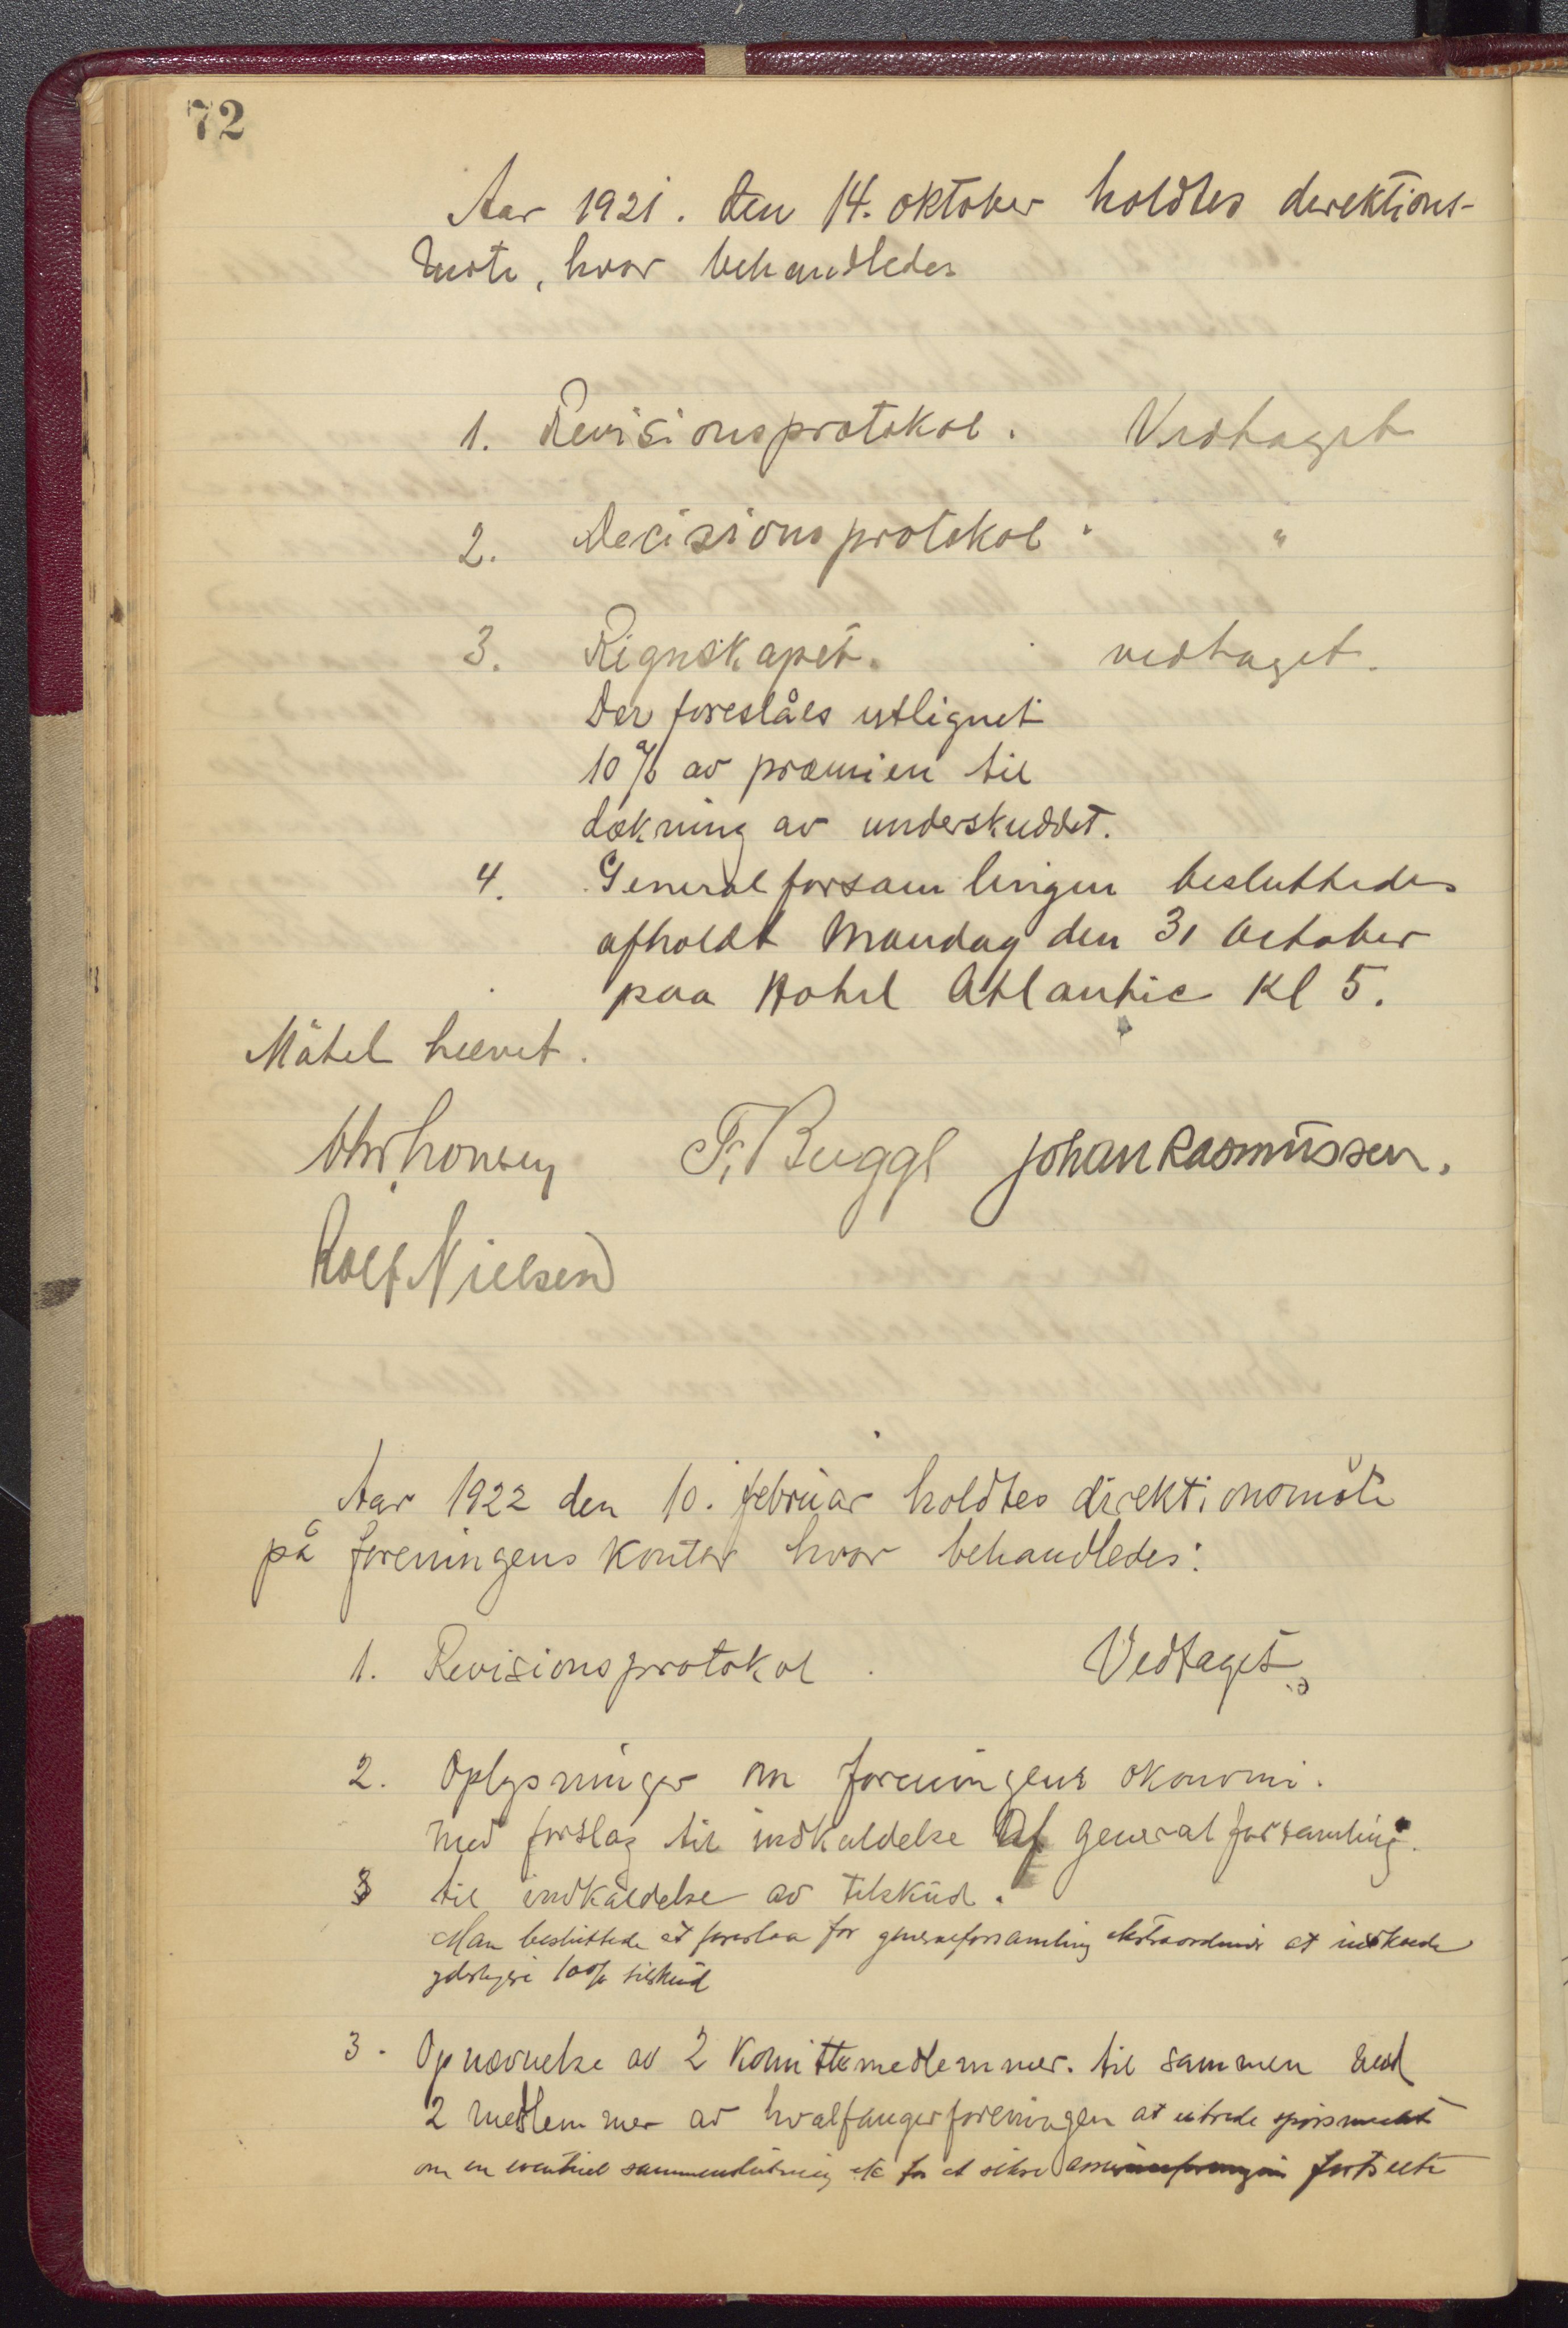 72
Aar 1921. den 14. oktober holdtes derektions-
møte, hvor behandledes
1. Revisionsprotokol. Vedtaget
2. Decisionsprotokol. "
3. Rignskapet. vedtaget.
Der foreslåes utlignet
10% av præmien til
dækning av underskuddet.
4. Generalforsamlingen besluttedes
afholdt Mandag den 31 October
paa Hotel Atlantic Kl 5.
Møtet hævet.
F. Bugge Johan Rasmussen.
Rolf Nielsen
Aar 1922 den 10. februar holdtes direktionsmöte
på foreningens kontor hvor behandledes:
1. Revisionsprotokol. Vedtaget
2. Oplysninger om foreningens økonomi.
med forslag til indkaldelse af generalforsamling.
3 til indkaldelse av tilskud.
Man besluttede at foreslaa for generalforsamling ekstraordinær at indkalde
yderligere 100% tilskud
3. Opnævnelse av 2 komittemedlemmer. til sammen med
2 medlemmer av hvalfangerforeningen at utrede spörsmålet
om en eventuel sammenslutning etc for at sikre fortsette